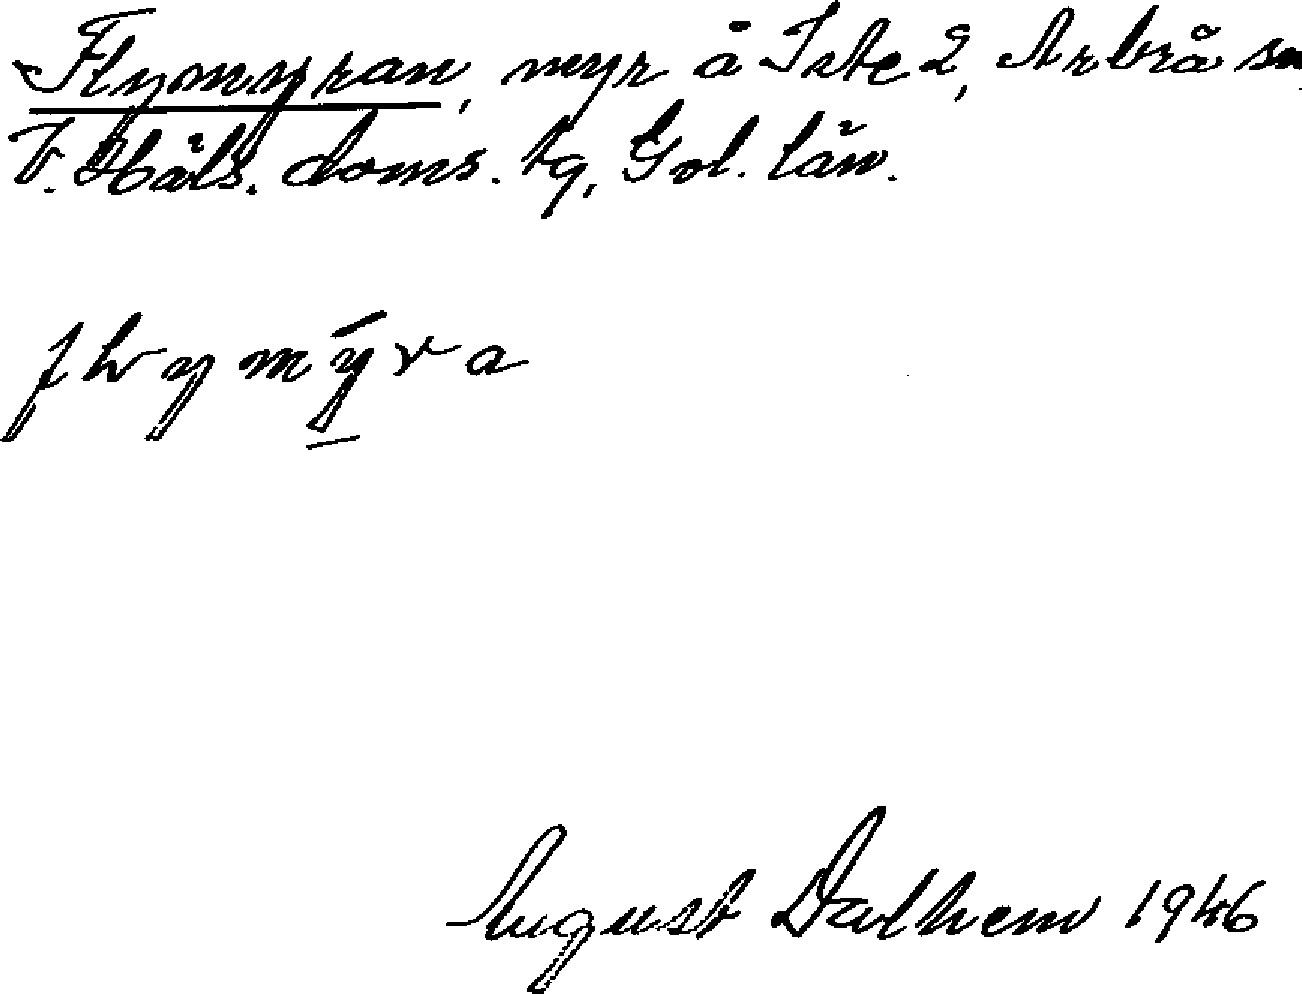 Flymyran, myr å Iste 2, Arbrå sn
V. Häls. doms. tg, Gvl. län.
flymy̱ra
August Dalhem 1946